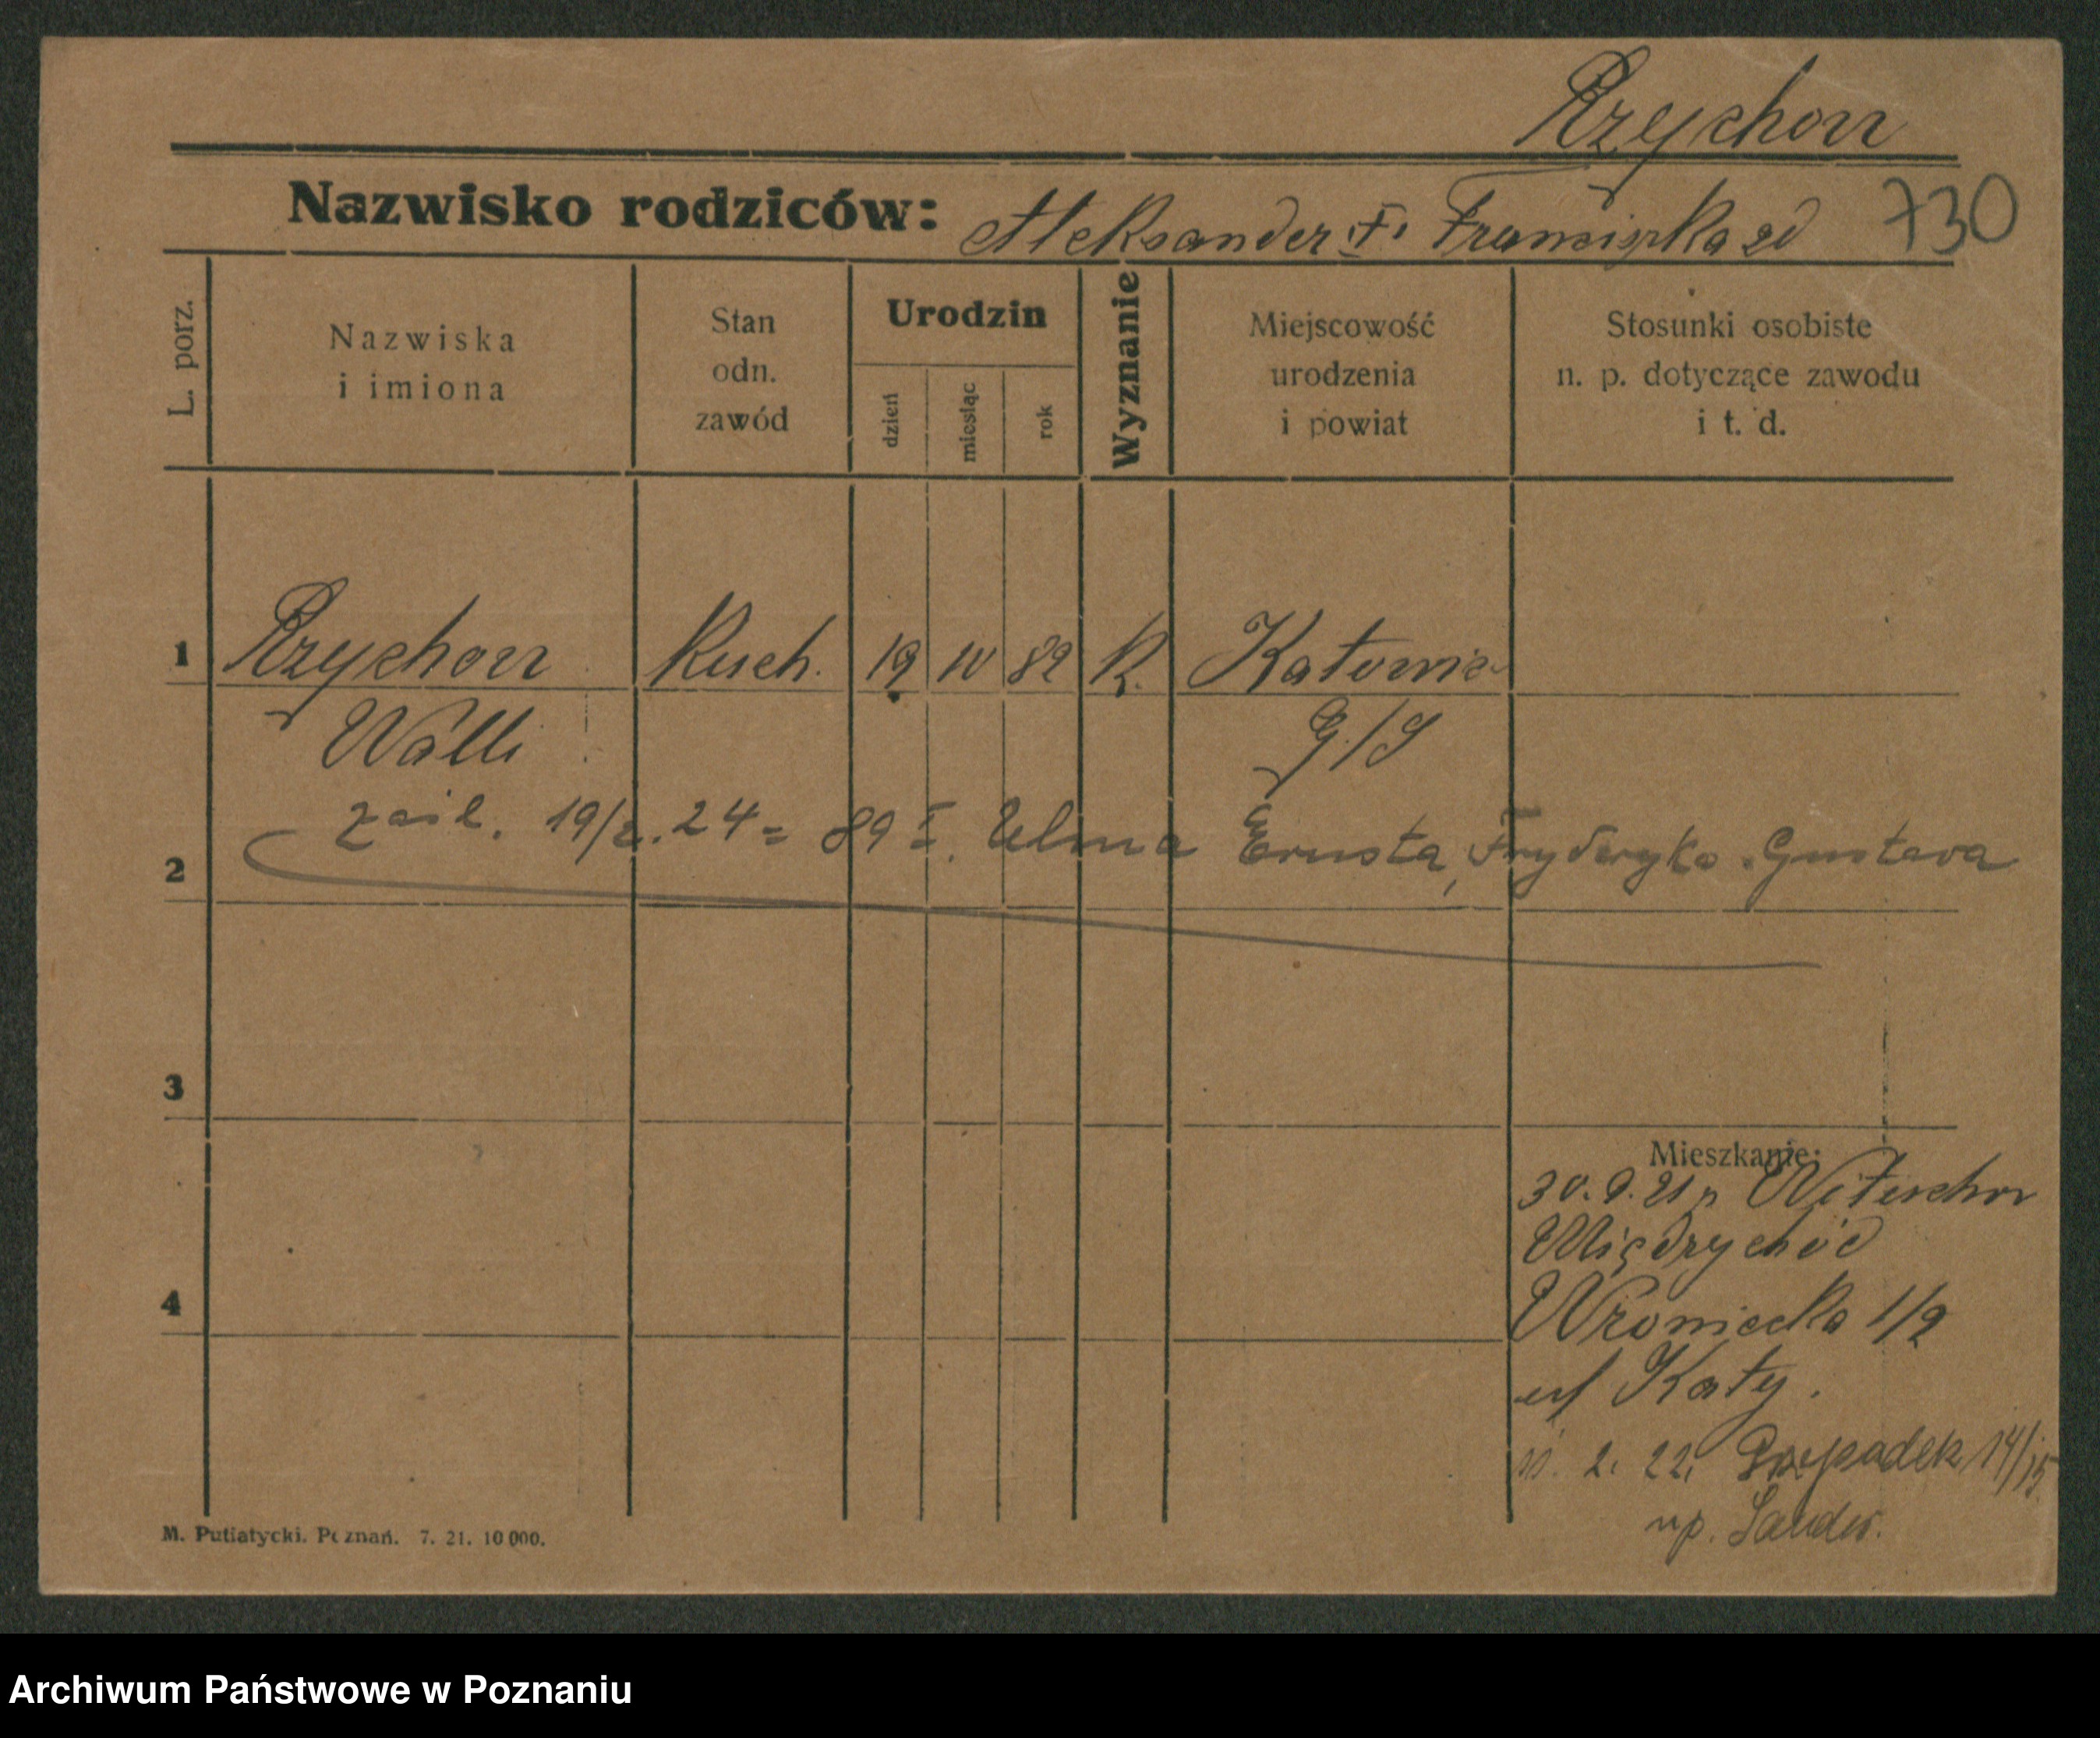 Rzychon
Nazwisko rodziców: Aleksander i Franciszka zd 730
L. porz.
Nazwiska
i imiona
Stan
odn.
zawód
Urodzin
dzień
miesiąc
rok
Wyznanie
Miejscowość
urodzenia
i powiat
Stosunki osobiste
n. p. dotyczące zawodu
i t. d.
1 Rzychon Kuch. 19 10 89 K. Katowic
Walli G./S
2 zaśl. 19/2. 24 = 89 I. Ulma Ernsta, Fryderyka Gustava
3
Mieszkanie:
30. 9. 21
Międzychód
4 Wroniecka 1/2
u/ Katy.
2. 22. Przepadek 14/15
up. Sander.
M. Putiatycki. Poznań. 7. 21. 10 000.
Archiwum Państwowe w Poznaniu